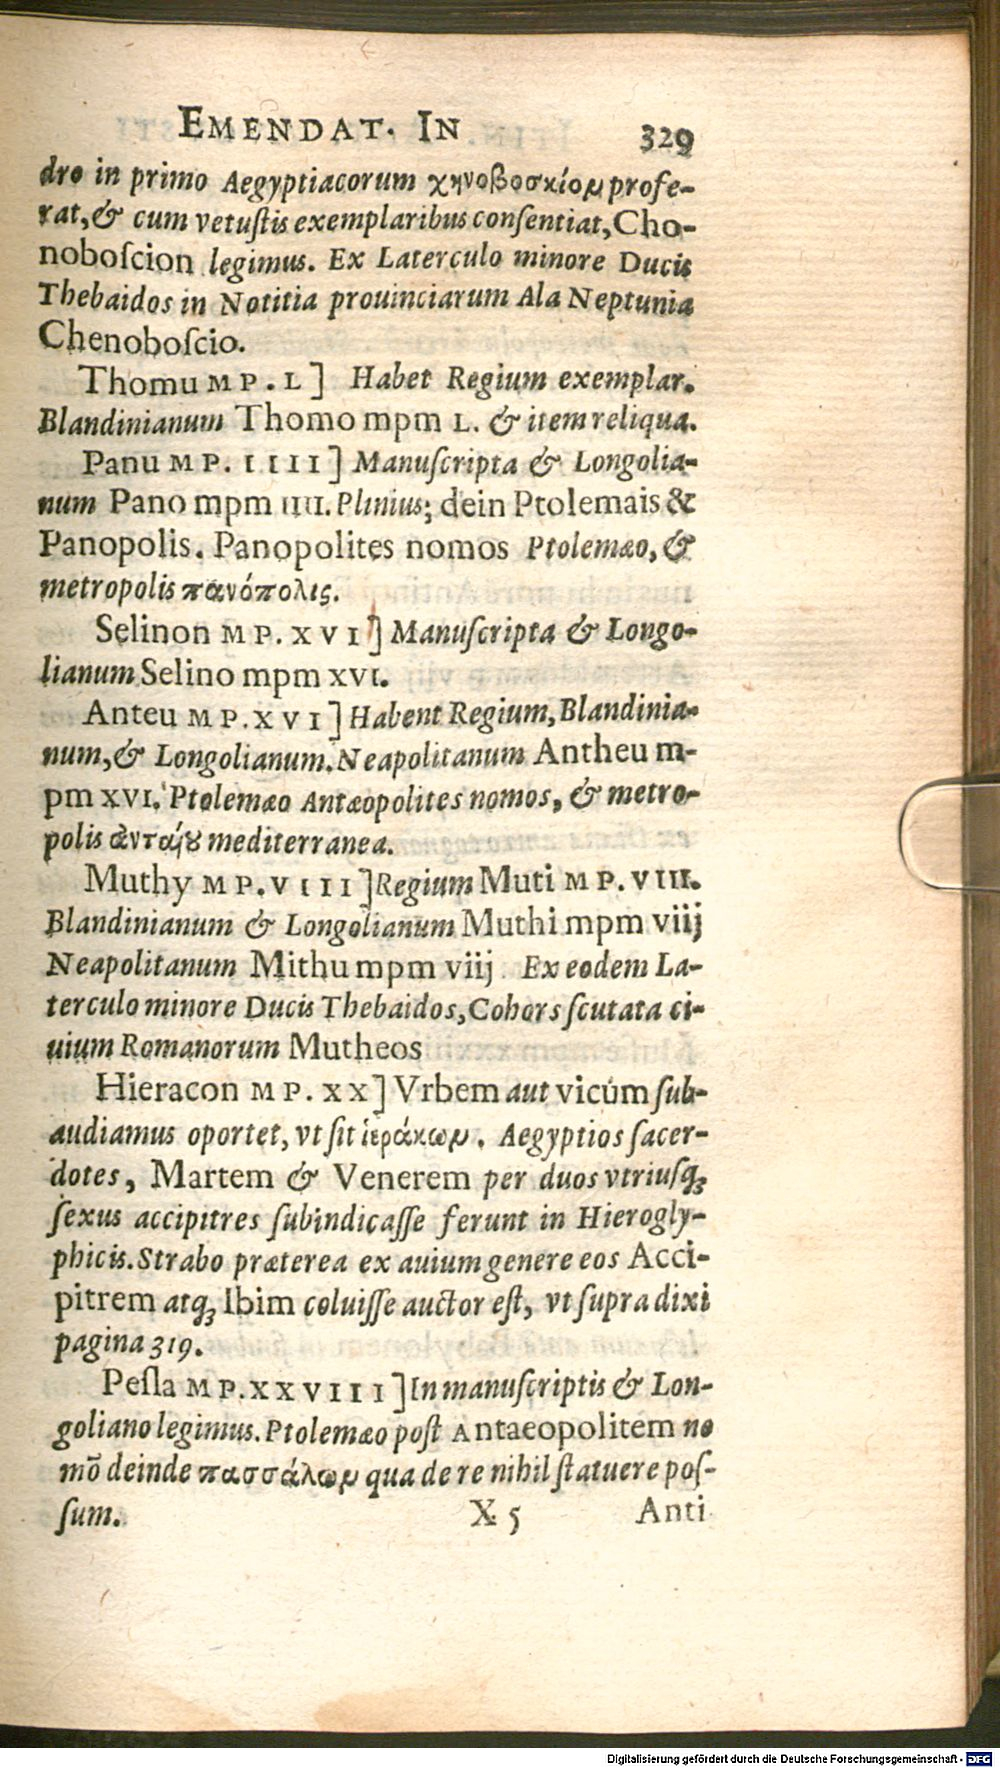 EMENDAT. IN 329
dro in primo Aegyptiacorum χηνοβοσκίομ profe-
rat, & cum vetuſtis exemplaribus conſentiat, Cho-
noboſcion legimus. Ex Laterculo minore Ducis
Thebaidos in Notitia prouinciarum Ala Neptunia
Chenoboſcio.
Thomu MP. L] Habet Regium exemplar.
Blandinianum Thomo mpm L. & item reliqua.
Panu MP. IIII] Manuſcripta & Longolia-
num Pano mpm IIII. Plinius; dein Ptolemais &
Panopolis. Panopolites nomos Ptolemæo, &
metropolis πανόπολις.
Selinon MP. XVI] Manuſcripta & Longo-
lianum Selino mpm XVI.
Anteu MP. XVI] Habent Regium, Blandinia-
num, & Longolianum. Neapolitanum Antheu m-
pm XVI. Ptolemæo Antæopolites nomos, & metro-
polis ἀνταίȣ mediterranea.
Muthy MP. VIII] Regium Muti MP. VIII.
Blandinianum & Longolianum Muthi mpm viij
Neapolitanum Mithu mpm viij Ex eodem La-
terculo minore Ducis Thebaidos, Cohors ſcutata ci-
uium Romanorum Mutheos
Hieracon MP. XX] Vrbem aut vicum ſub-
audiamus oportet, vt ſit ἱεράκωμ. Aegyptios ſacer-
dotes, Martem & Venerem per duos vtriuſq;
ſexus accipitres ſubindicaſſe ferunt in Hierogly-
phicis. Strabo præterea ex auium genere eos Acci-
pitrem atq; Ibim coluiſſe auctor eſt, vt ſupra dixi
pagina 319.
Peſla MP. XXVIII] In manuſcriptis & Lon-
goliano legimus. Ptolemæo poſt Antaeopolitem no
mō deinde πασσάλωμ qua de re nihil ſtatuere poſ-
ſum. X 5 Anti
Digitalisierung gefördert durch die Deutsche Forschungsgemeinschaft - DFG